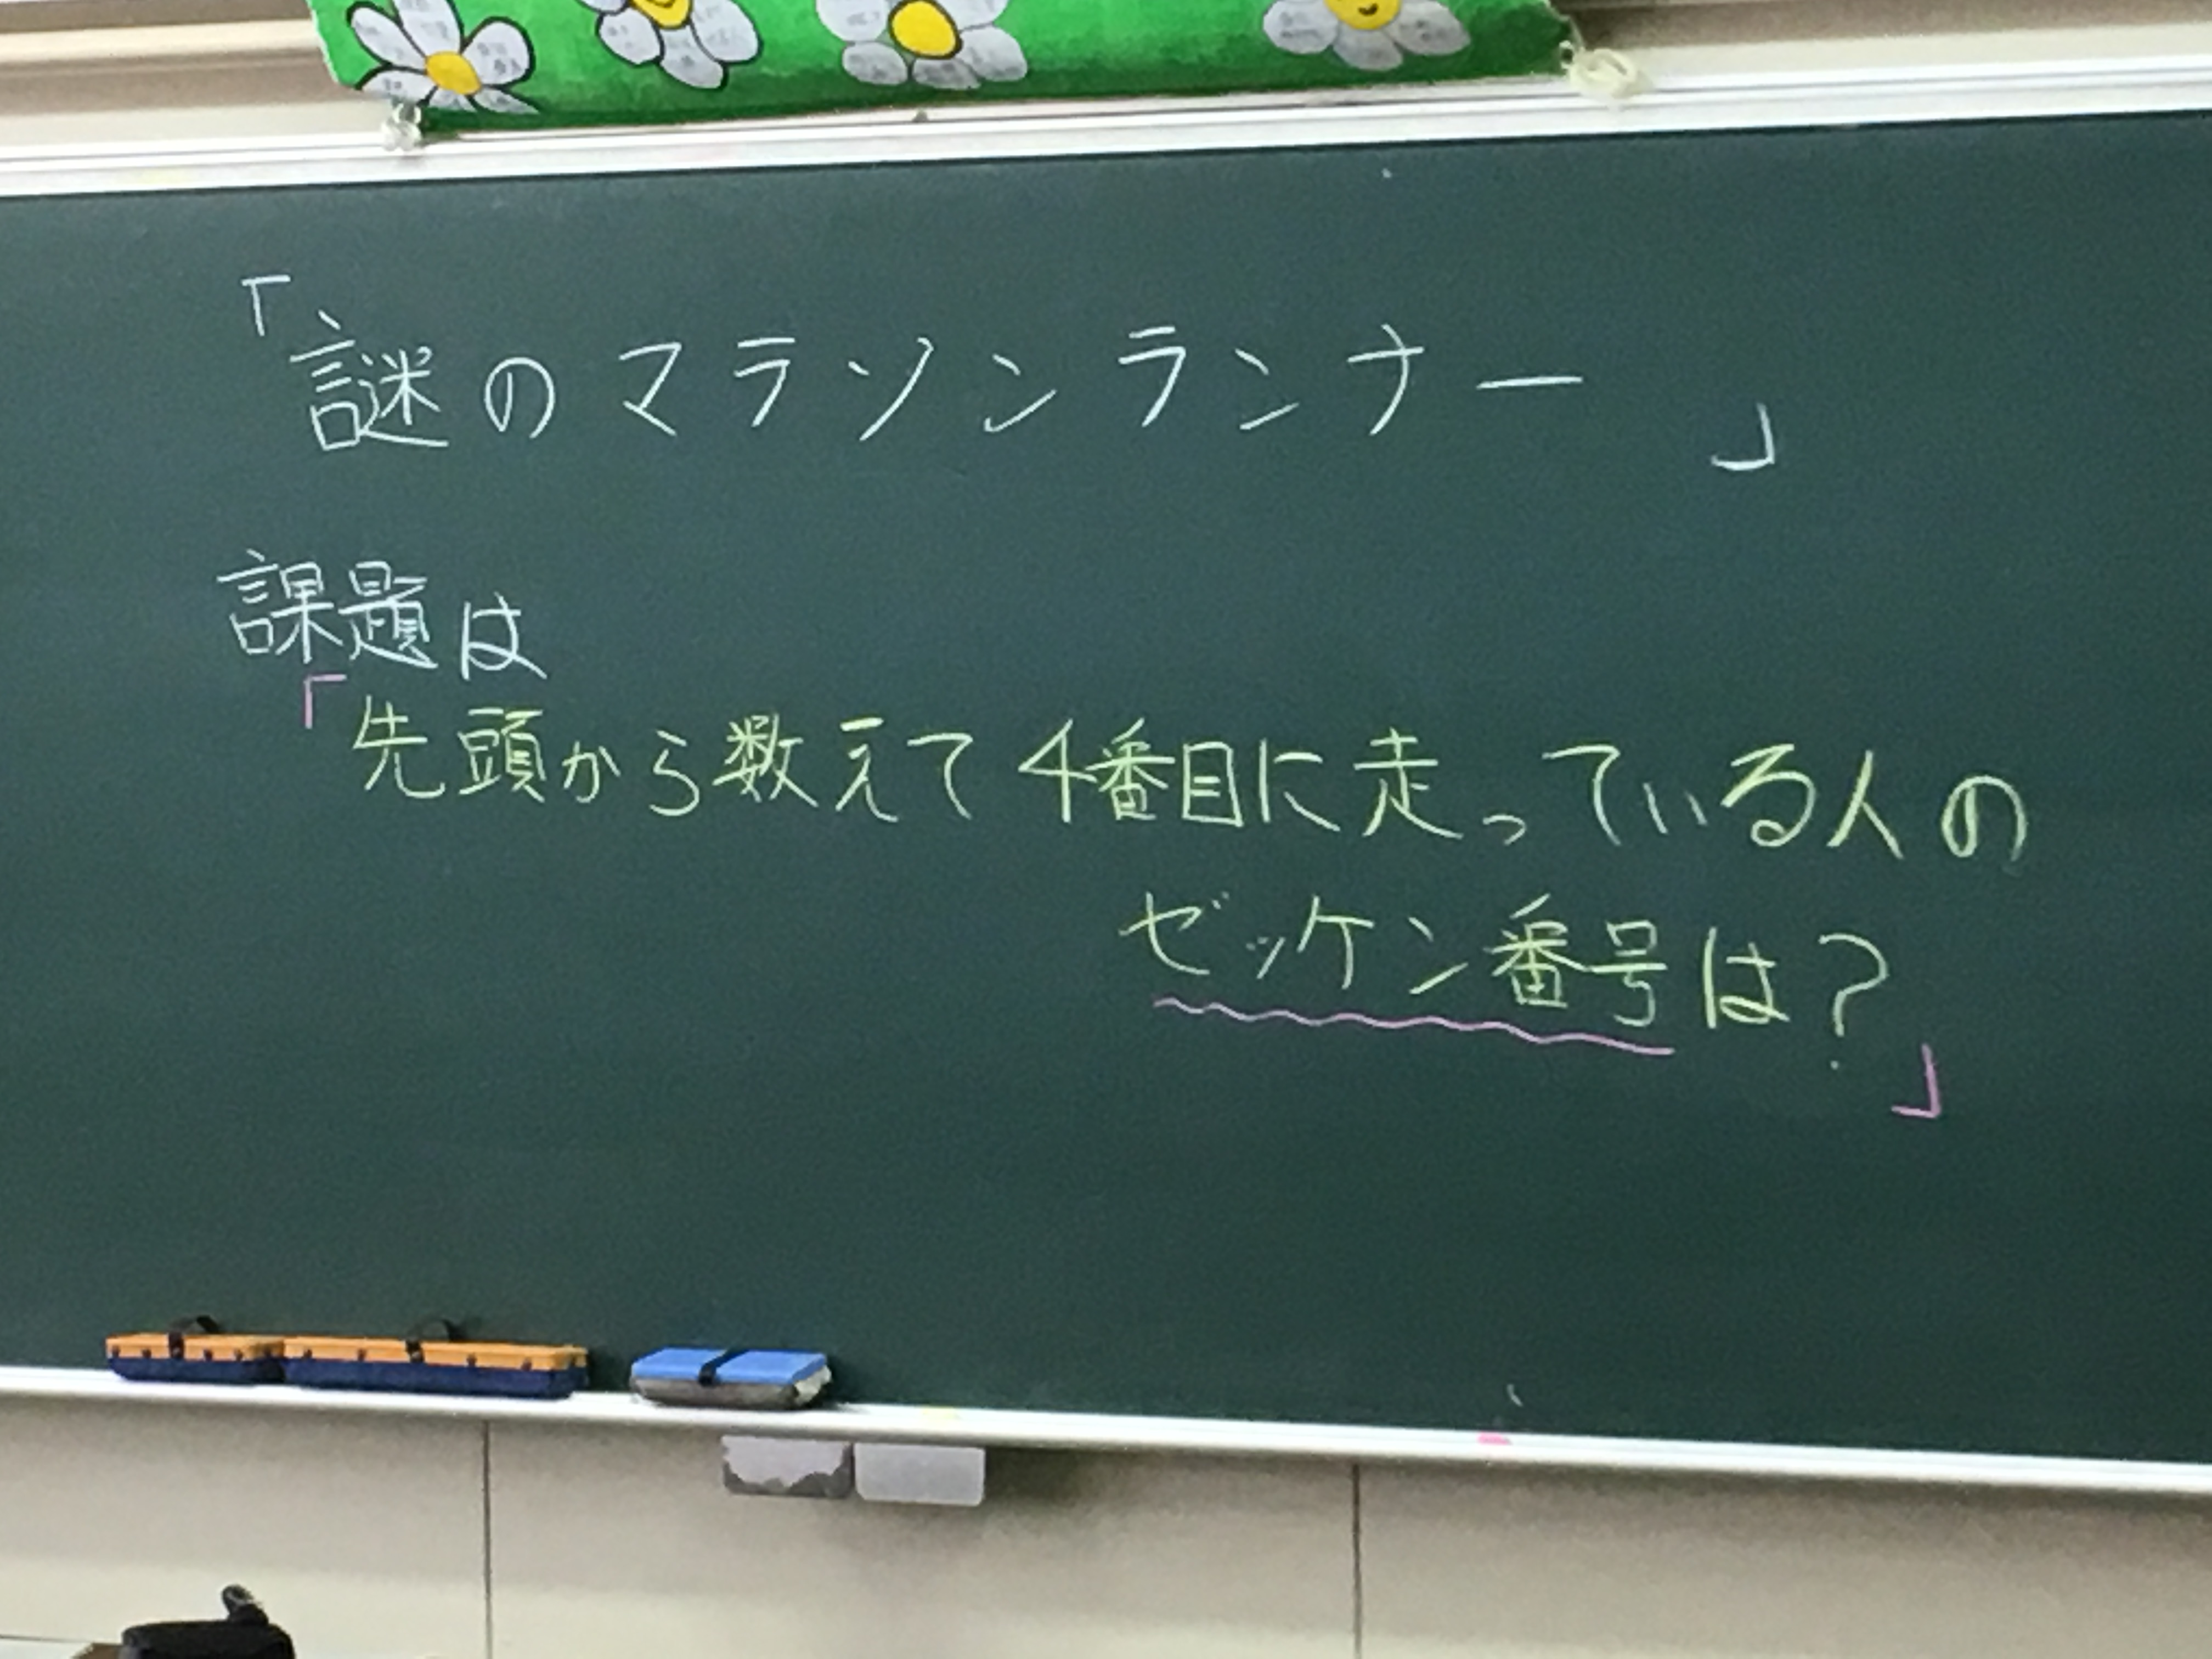 「謎のマラソンランナー」
課題は
「先頭から数えて4番目に走っている人の
ゼッケン番号は?」